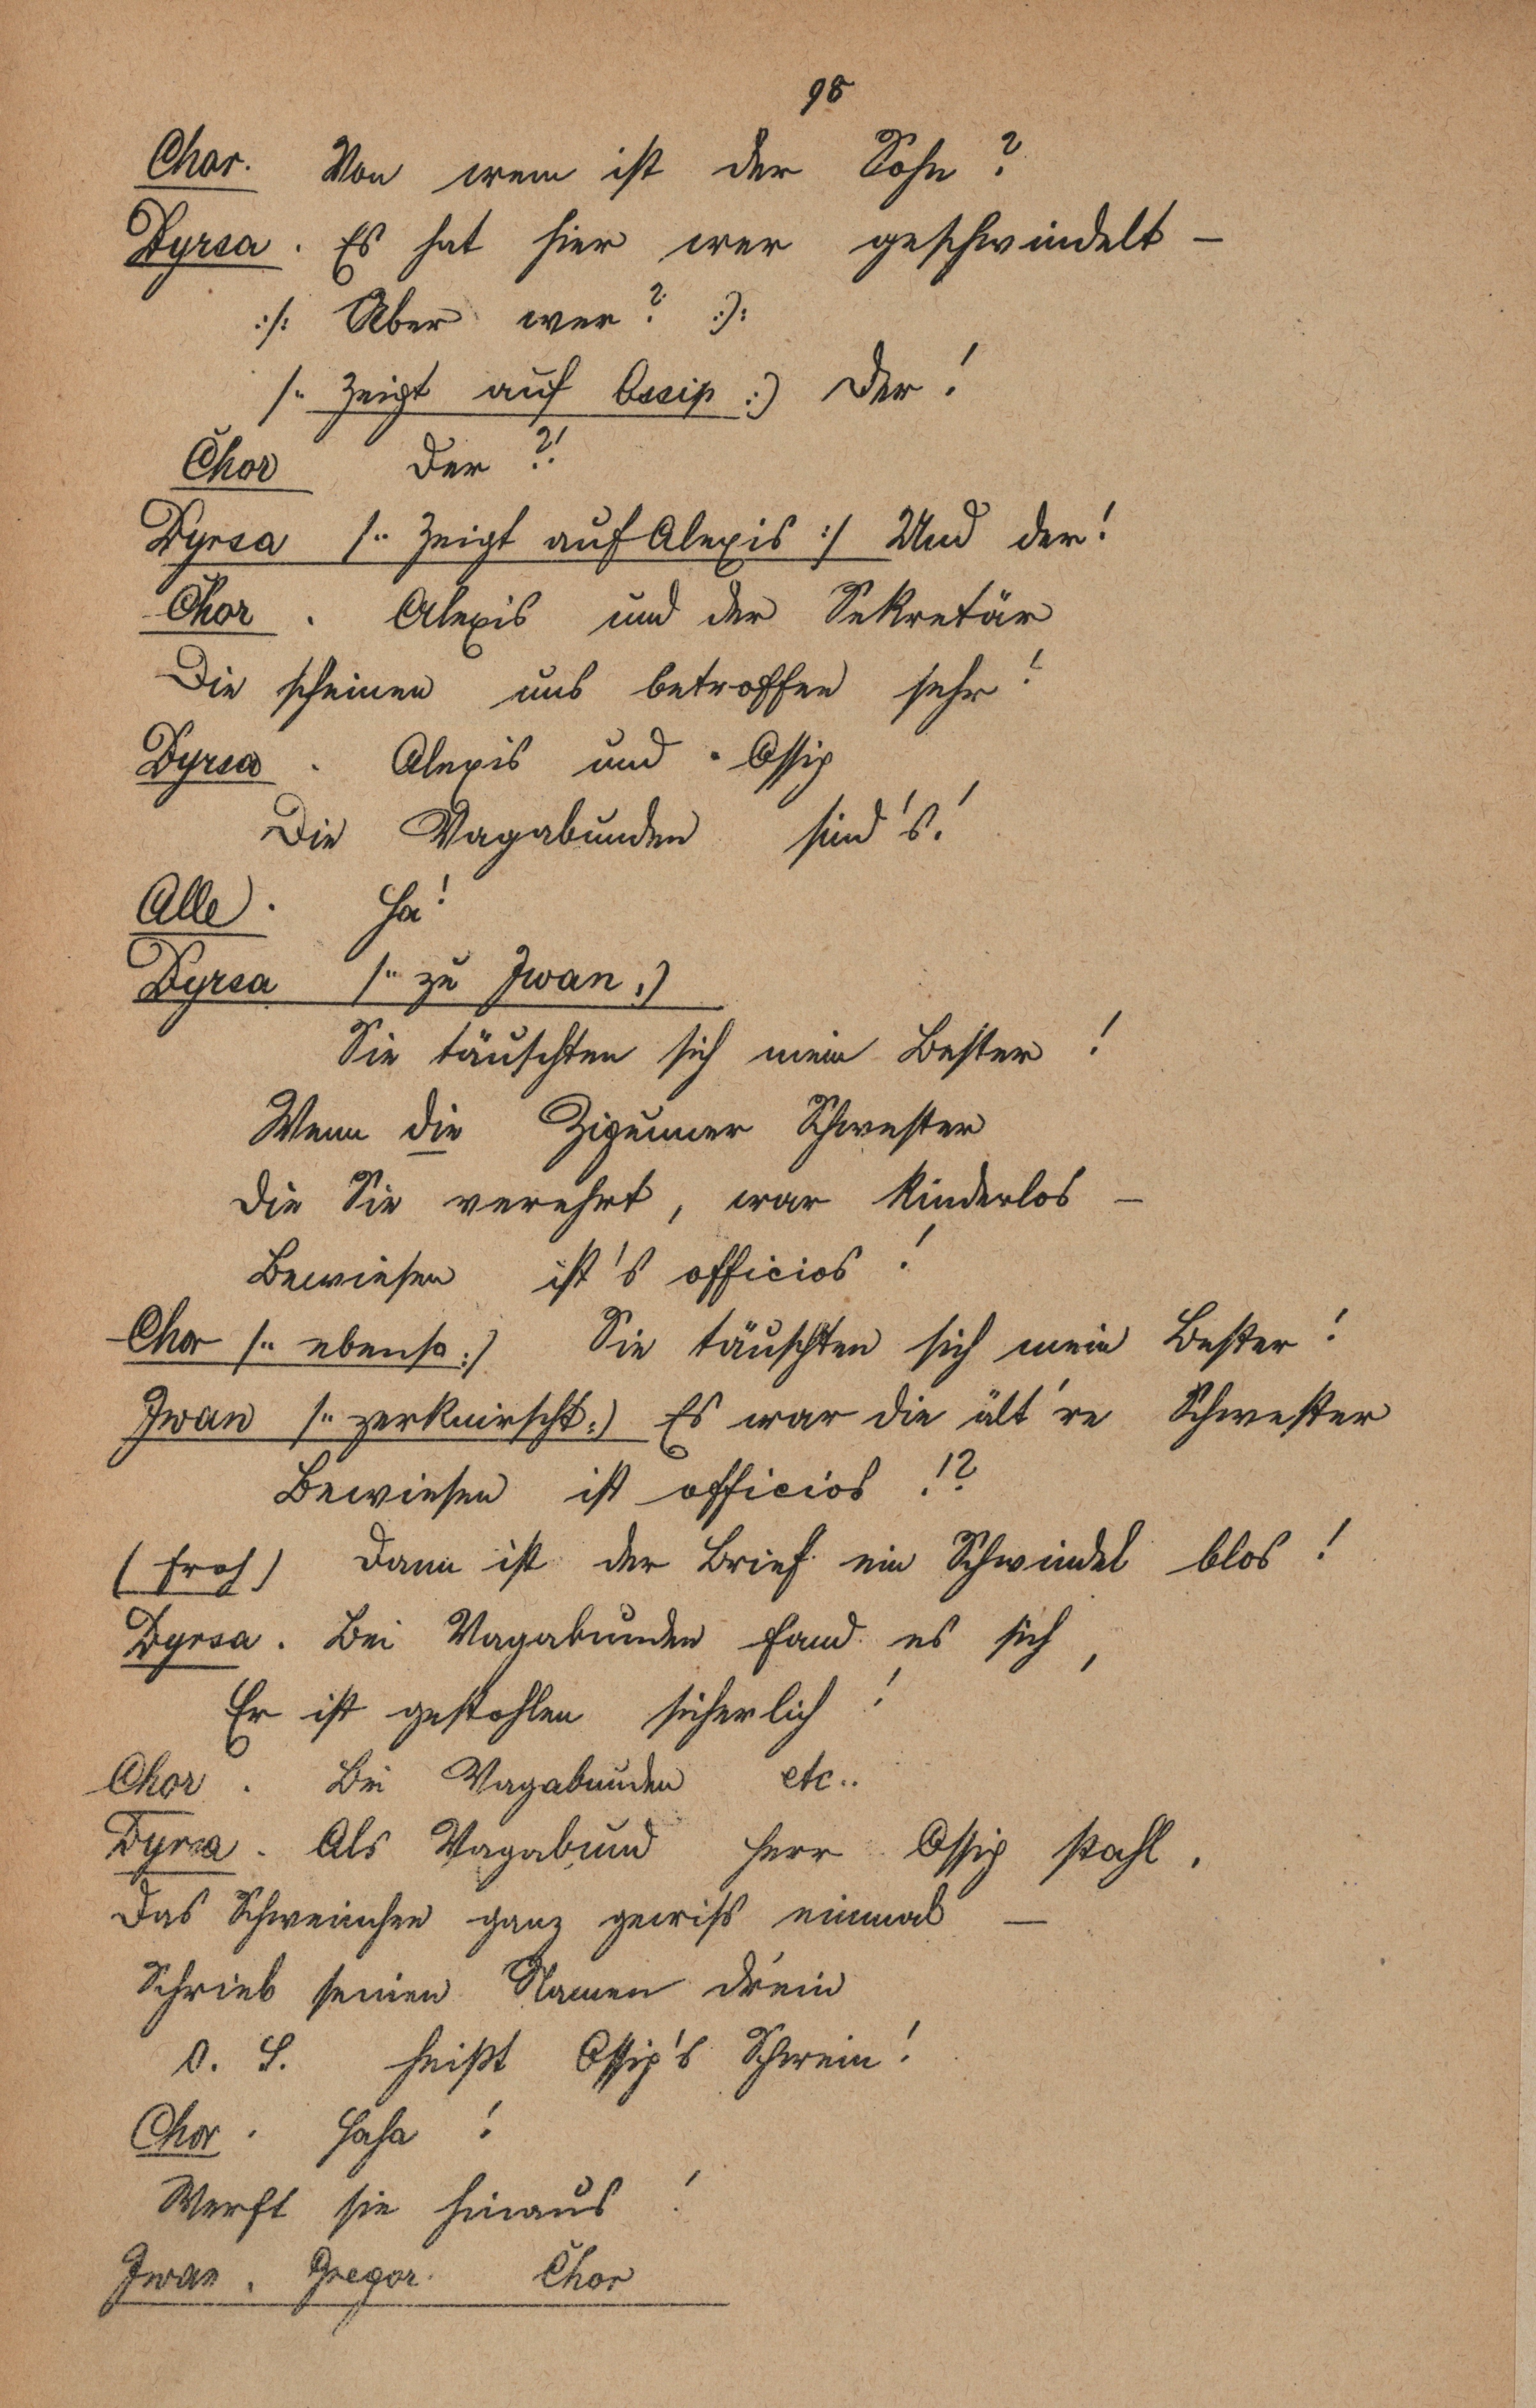 98
Chor. Von wem ist der Sohn?
Dyrsa. Es hat hier wer geschwindelt –
:/: Aber wer? :/:
/: zeigt auf Ossip :) Der!
Chor Der?!
Dyrsa /: zeigt auf Alexis :/ Und der!
Chor. Alexis und der Sekretär
Die scheinen uns betroffen sehr!
Dyrsa. Alexis und Ossip
Die Vagabunden sind's!
Alle. Ha!
Dyrsa /: zu Iwan :)
Sie täuschten sich mein Bester!
Wenn die Zigeuner Schwester
Die Sie verehrt, war kinderlos –
Bewiesen ist's officios!
Chor /: ebenso :/ Sie täuschten sich mein Bester!
Iwan /: zerknirscht :) Es war die ält're Schwester
Bewiesen ist officios!?
(froh) Dann ist der Brief ein Schwindel blos!
Dyrsa. Bei Vagabunden fand es sich,
Er ist gestohlen sicherlich!
Chor. Bei Vagabunden etc..
Dyrsa. Als Vagabund Herr Ossip stahl,
Das Schweinchen ganz gewiss einmal –
Schrieb seinen Namen d'rein
O. S. heißt Ossip's Schwein!
Chor. Haha!
Werft sie hinaus!
Iwan. Gregor. Chor